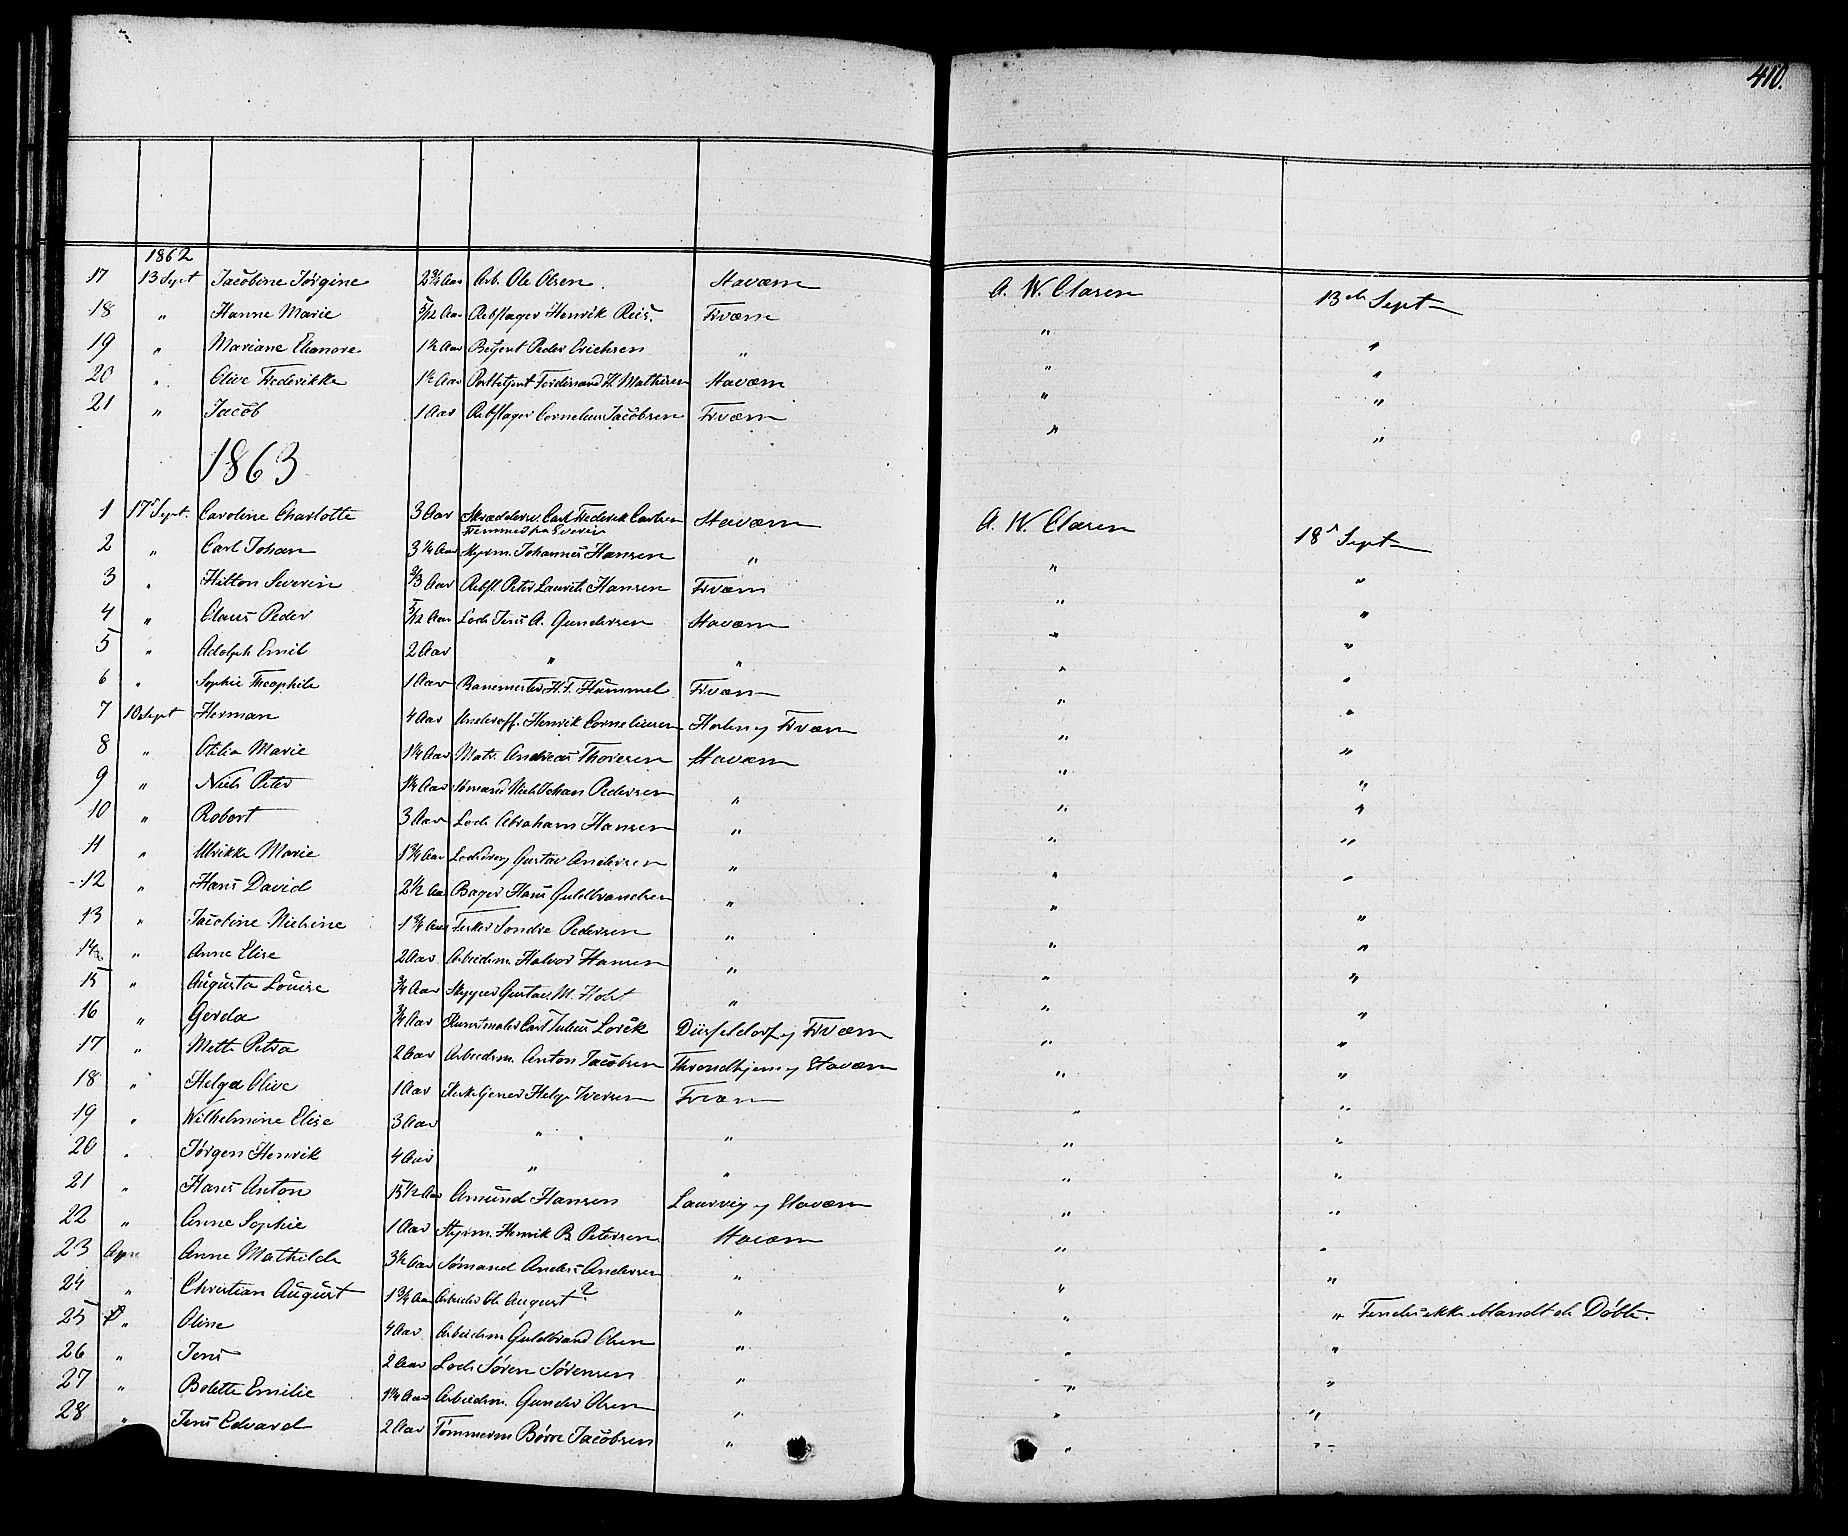 410.
1862
17 13 Sept Jacobine Jørgine 2 3/4 Aar Arb. Ole Olsen. Staværn A. W. Clasen 13de Sept
18 " Hanne Marie 5/12 Aar Rebslager Henrik Reis. Frværn " "
19 " Mariane Eleonore 1 1/2 Aar Betjent Peder Erichsen " " "
20 " Olive Frederikke 1 1/2 Aar Postbetjent Ferdinand H. Mathisen Staværn " "
21 " Jacob 1 Aar Rebslager Cornelius Jacobsen Frværn " "
1863
1 17 Sept. Caroline Charlotte 3 Aar Skræddersv. Carl Frederik Carlsen Staværn A. W. Clasen 18 Sept
2 " Carl Johan 3 1/2 Aar Styrm. Johannes Hansen " " "
3 " Hilton Severin 2/3 Aar Rebsl. Peter Laurits Hansen Frværn " "
4 " Claus Peder 5/12 Aar Lods Jens A. Gundersen Staværn " "
5 " Adolph Emil 2 Aar " " " "
6 " Sophie Theophile 1 Aar Banemester H. F. Hammel Frværn " "
7 10 Sept Herman 4 Aar Underoff. Henrik Corneliussen Horten og Frværn " "
8 " Otilia Marie 1 1/4 Aar Matr. Andreas Thoresen Staværn " "
9 " Niels Peter 1 1/4 Aar Sømand Niels Johan Pedersen " " "
10 " Robert 3 Aar Lods Abraham Hansen " " "
11 " Ulrikke Marie 1 3/4 Aar Lodsdreng Gustav Andersen " " "
12 " Hans David 2 1/2 Aar Bager Hans Guldbrandsen " " "
13 " Jacobine Nielsine 1 3/4 Aar Fisker Sondre Pedersen " " "
14 " Anne Elise 2 Aar Arbeidsm. Halvor Hansen " " "
15 " Augusta Louise 3/4 Aar Skipper Gustav M. Holst " " "
16 " Gerda 3/4 Aar Kunstmaler Carl Julius Lorck Düsseldorf og Frværn " "
17 " Mette Petra 2 Aar Arbeidsm. Anton Jacobsen Throndhjem og Staværn " "
18 " Helga Olive 1 Aar Kirketjener Helge Iversen Frværn " "
19 " Wilhelmine Elise 3 Aar " " " "
20 " Jørgen Henrik 4 Aar " " " "
21 " Hans Anton 15 1/2 Aar Amund Hansen Laurvig og Staværn " "
22 " Anne Sophie 1 Aar Styrm. Henrik B. Petersen Staværn " "
23 Anne Mathilde 3 1/2 Aar Sømand Anders Andersen " " "
24 " Christian August 1 3/4 Aar Arbeider Ole August? " " "
25 " Oline 4 Aar Arbeidsm Guldbrand Olsen " " " Findes ikke blandt de Døbte.
26 " Jens 2 Aar Lods Søren Sørensen " " "
27 " Bolette Emilie 1 1/4 Aar Arbeidsm. Gunder Olsen " " "
28 " Jens Edvard 2 Aar Tømmerm Børre Jacobsen " " "